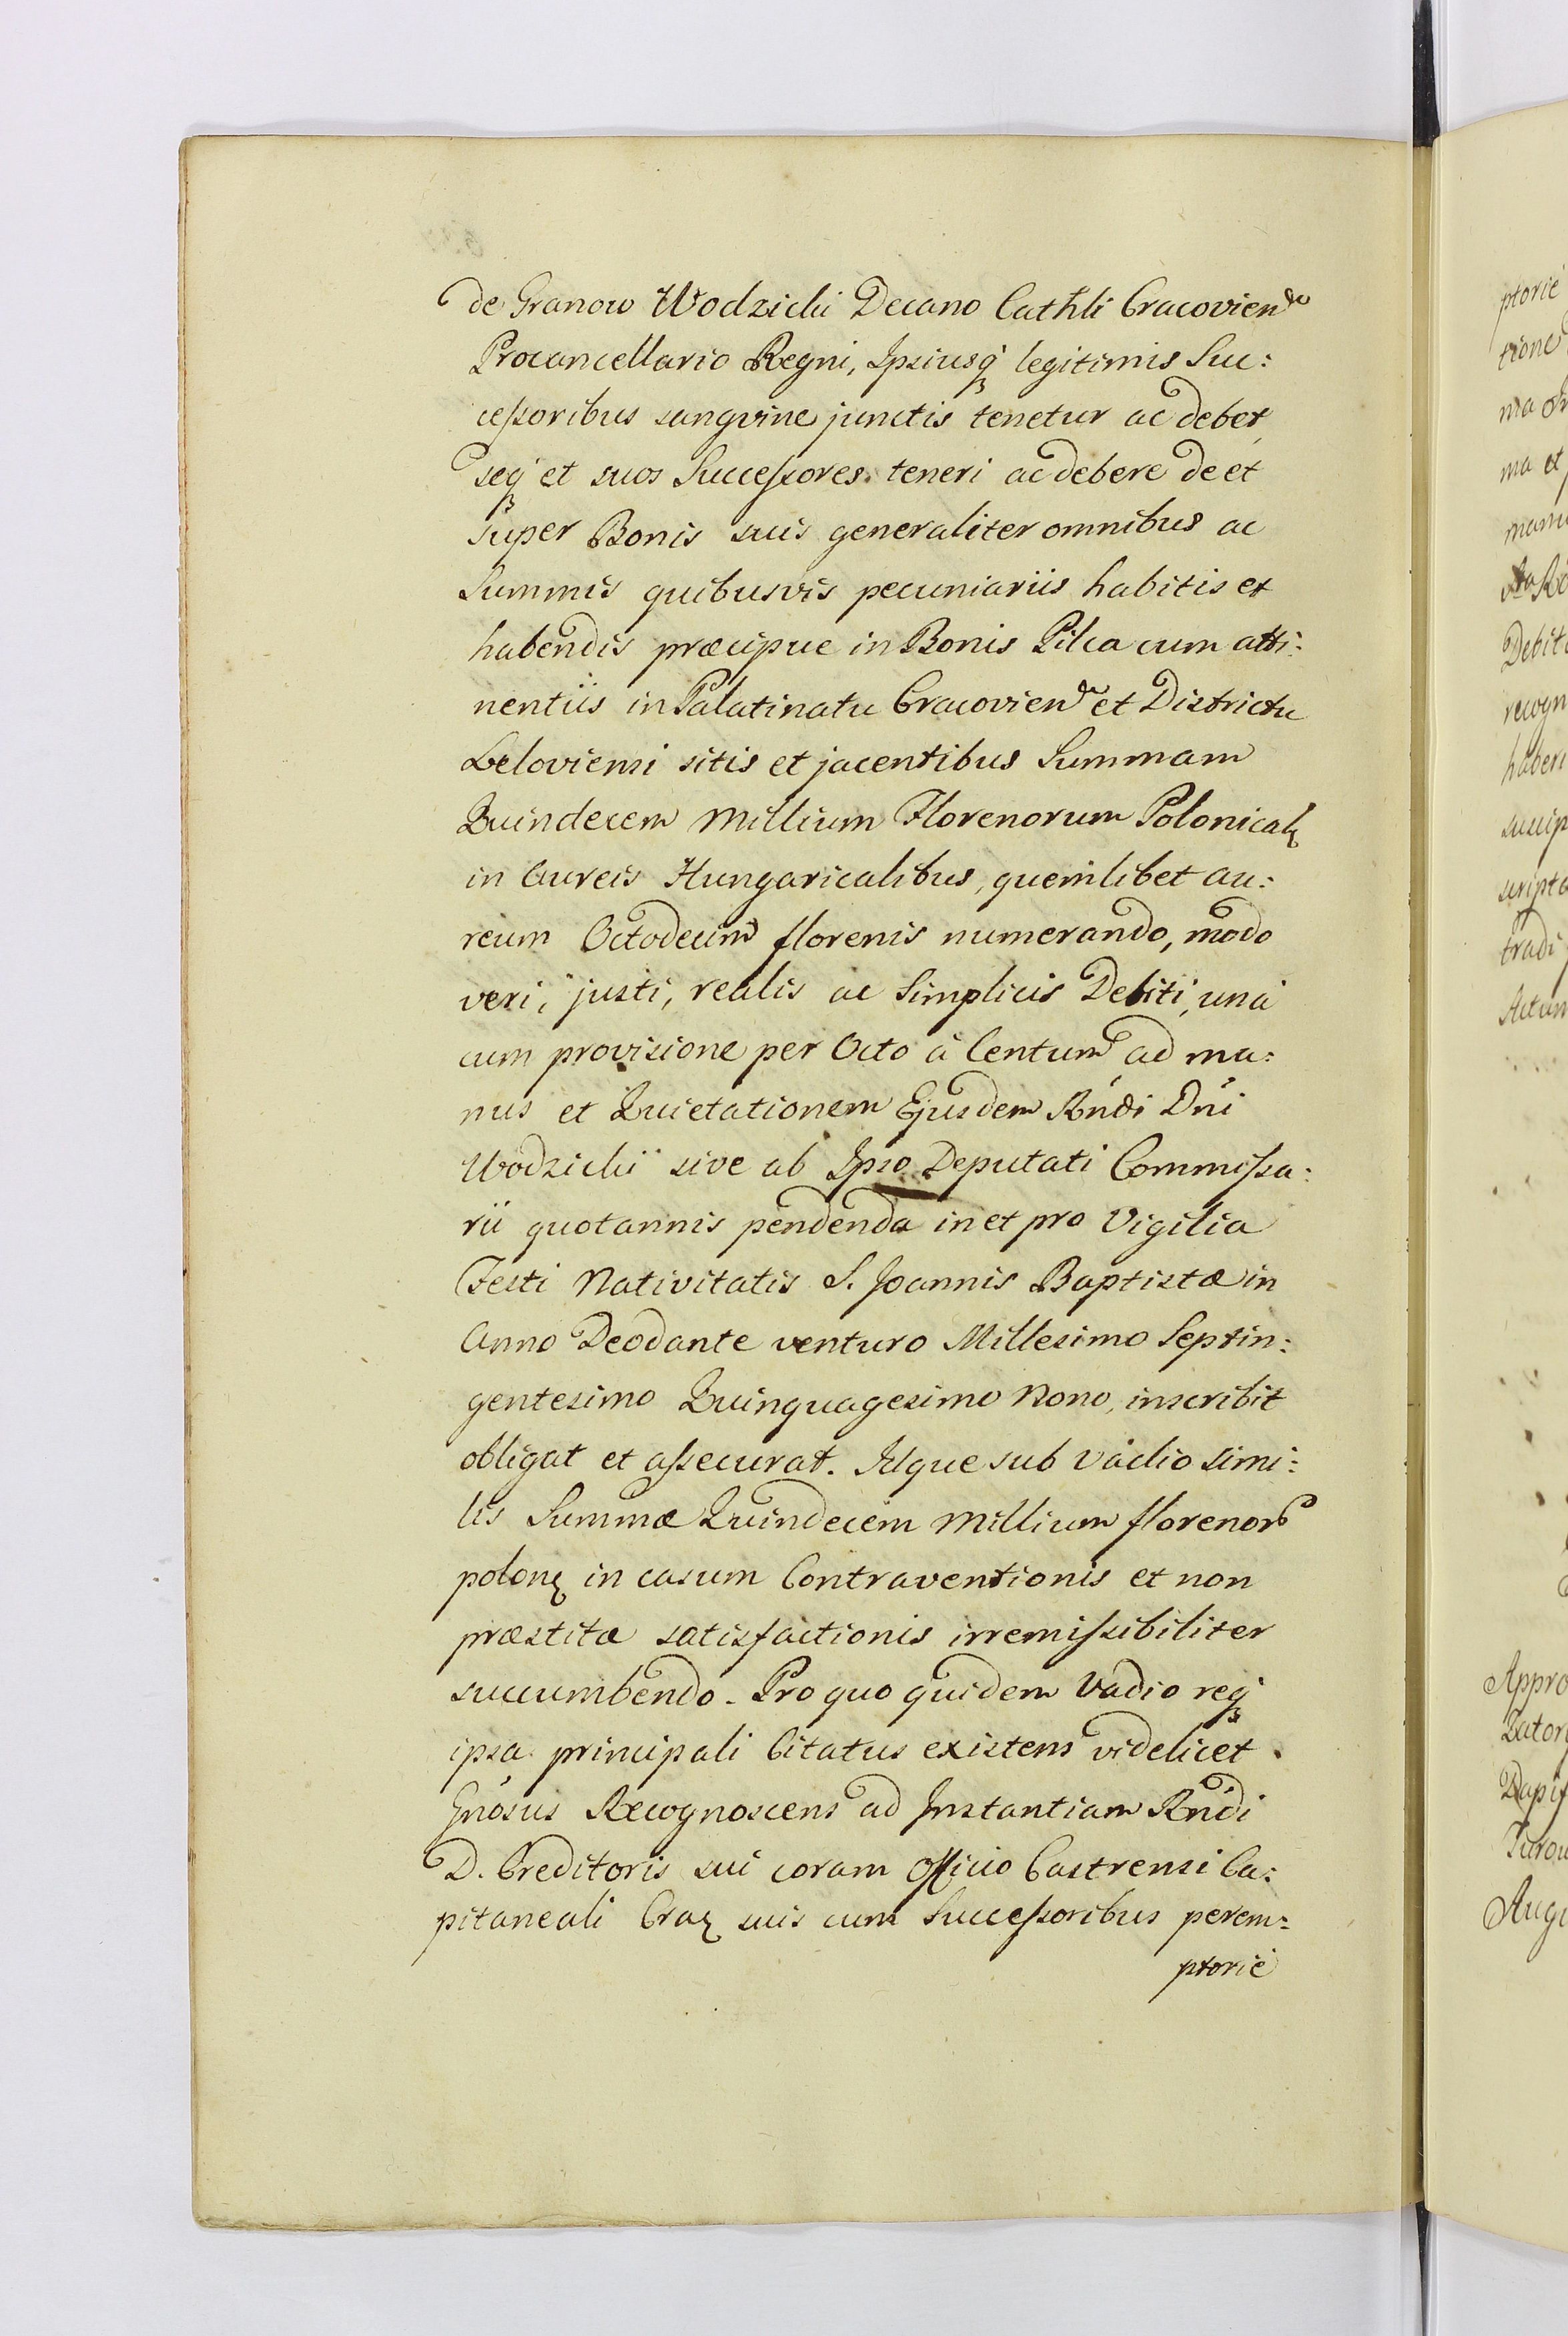 de Granow Wodzicki Decano Cathli Cracovien
Procancellario Regni, Ipsiusq legitimis Suc:
cessoribus sangvine junctis tenetur ac debet,
seq et suos Successores teneri ac debere de et
super Bonis suis generaliter omnibus ac
Summis quibusvis pecuniariis habitis et
habendis præcipue in Bonis Pilca cum atti:
nentiis in Palatinatu Cracovien et Districtu
Leloviensi sitis et jacentibus Summam
Quindecem Millium Florenorum Polonical
in Aureis Hungaricalibus, quemlibet au:
reum Octodecim florenis numerando, modo
veri, justi, realis ac Simplicis Debiti, una
cum provisione per Octo à Centum ad ma:
nus et Quietationem Ejusdem Rndi Dni
Wodzicki sive ab Ipso Deputati Commissa:
rii quotannis pendenda in et pro Vigilia
Festi Nativitatis S. Joannis Baptistæ in
Anno Deodante venturo Millesimo Septin:
gentesimo Quinquagesimo Nono, inscribit
obligat et assecurat. Idque sub vadio simi:
lis Summæ Quindecem Millium florenor
polon in casum Contraventionis et non
præstitæ satisfactionis irremissibiliter
succumbendo. Pro quo quidem Vadio req
ipsa principali Citatus existens videlicet
Gnosus Recognoscens ad Instantiam Rndi
D. Creditoris sui coram Officio Castrensi Ca:
pitaneali Crac suis cum Successoribus perem:
ptorie
ptorie
tione
ma
ma et
manu
Debit
recogn
haberi
suscip
script
tradi
Actum
Appro
Dapif
Augu